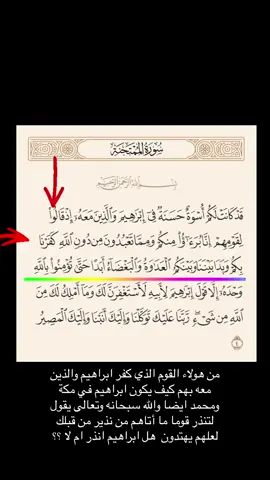 سُورَةُ المُمْتَحنَة
بِسْمِ اللَّهِ الرَّحْمَٰنِ الرَّحِيمِ
قَدْ كَانَتْ لَكُمْ أُسْوَةٌ حَسَنَةٌ فِي إِبْرَاهِيمَ وَالَّذِينَ مَعَهُ إِذْ قَالُوا
لِقَوْمِهِمْ إِنَّا بُرَءَاؤُا مِنكُمْ وَمِمَّا تَعْبُدُونَ مِن دُونِ اللَّهِ كَفَرْنَا
بِكُمْ وَبَدَا بَيْنَنَا وَبَيْنَكُمُ الْعَدَاوَةُ وَالْبَغْضَاءُ أَبَدًا حَتَّى تُؤْمِنُوا بِاللَّهِ
وَحْدَهُ إِلَّا قَوْلَ إِبْرَاهِيمَ لِأَبِيهِ لَأَسْتَغْفِرَنَّ لَكَ وَمَا أَمْلِكُ لَكَ مِنَ
اللَّهِ مِن شَيْءٍ رَّبَّنَا عَلَيْكَ تَوَكَّلْنَا وَإِلَيْكَ أَنَبْنَا وَإِلَيْكَ الْمَصِيرُ
من هولاء القوم الذي كفر ابراهيم والذين
معه بهم كيف يكون ابراهيم في مكة
ومحمد ايضا والله سبحانه وتعالى يقول
لتنذر قوما ما أتاهم من نذير من قبلك
لعلهم يهتدون هل ابراهيم انذر ام لا ؟؟